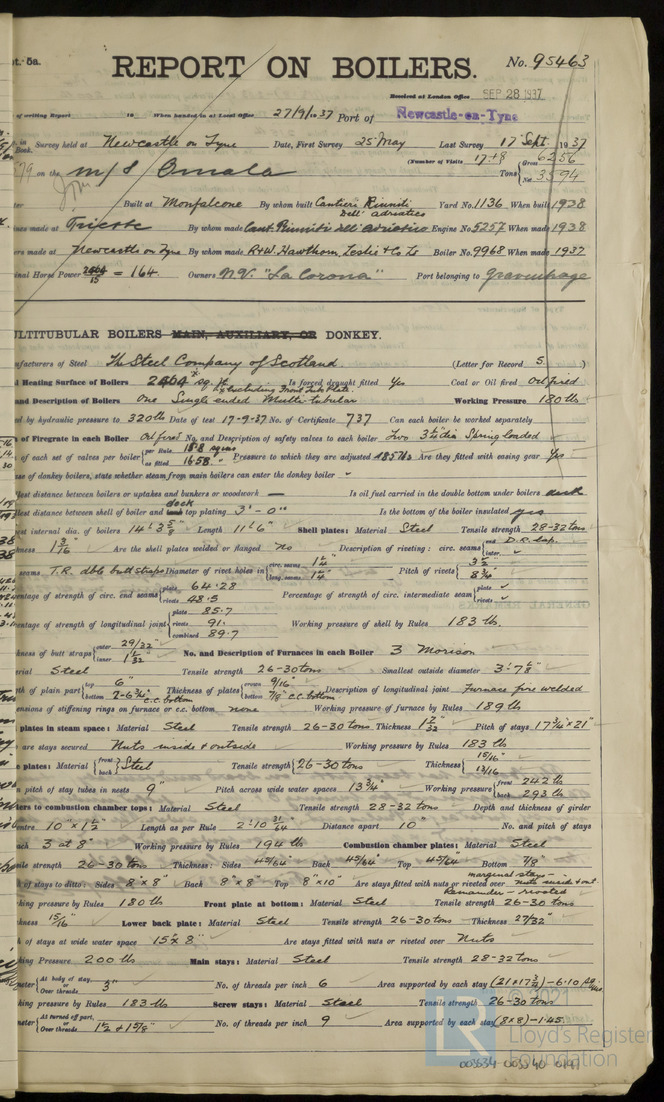 pt. 5a.
REPORT ON BOILERS.
No. 95463
Received at London Office SEP 28 1937
of writing Report 19 When handed in at Local Office 27/9/1937 Port of Newcastle-on-Tyne
in Book. Survey held at Newcastle on Tyne Date, First Survey 25 May Last Survey 17 Sept. 1937
(Number of Visits 17+8
on the m/s Omala Tons { Gross 6256 Net 3594
Built at Monfalcone By whom built Cantieri Riuniti Dell' adriatico Yard No. 1136 When built 1938
ines made at Trieste By whom made Cant. Riuniti dell' adriatico Engine No. 5257 When made 1938
ers made at Newcastle on Tyne By whom made R&W. Hawthorn, Leslie & Co Ld Boiler No. 9968 When made 1937
inal Horse Power 2464/15 = 164. Owners N.V. "La Corona" Port belonging to Gravenhage
ULTITUBULAR BOILERS MAIN, AUXILIARY, OR DONKEY.
nufacturers of Steel The Steel Company of Scotland (Letter for Record S. )
l Heating Surface of Boilers 2464 sq. ft. Is forced draught fitted Yes Coal or Oil fired Oil fired
* Excluding Front Tube Plate
and Description of Boilers One Single ended Multi-tubular Working Pressure 180 lbs
ed by hydraulic pressure to 320 lb Date of test 17-9-37 No. of Certificate 737 Can each boiler be worked separately
of Firegrate in each Boiler Oil fired No. and Description of safety valves to each boiler Two 3½" dia Spring loaded
of each set of valves per boiler { per Rule as fitted 16.58 " Pressure to which they are adjusted 185 lbs Are they fitted with easing gear Yes
se of donkey boilers, state whether steam from main boilers can enter the donkey boiler ✓
llest distance between boilers or uptakes and bunkers or woodwork — Is oil fuel carried in the double bottom under boilers
llest distance between shell of boiler and deck top plating 3'-0" Is the bottom of the boiler insulated yes
est internal dia. of boilers 14'-3⅝" Length 11'-6" Shell plates: Material Steel Tensile strength 28-32 tons
kness 1 3/16 Are the shell plates welded or flanged No Description of riveting: circ. seams { end D.R. lap. inter. ✓
seams T.R. dble butt straps Diameter of rivet holes in { circ. seams 1¼" long. seams 1¼" Pitch of rivets { 3½ 8¾"
entage of strength of circ. end seams { plate 64.28 rivets 48.5 Percentage of strength of circ. intermediate seam { plate ✓ rivets ✓
entage of strength of longitudinal joint { plate 85.7 rivets 91. combined 89.7 Working pressure of shell by Rules 183 lbs.
kness of butt straps { outer 29/32" inner 1 1/32" No. and Description of Furnaces in each Boiler 3 Morison
erial Steel Tensile strength 26-30 tons Smallest outside diameter 3'-7⅞"
th of plain part { top 6" bottom 7-6¾" c.c. bottom Thickness of plates { crown 9/16" bottom 7/8" c.c. bottom Description of longitudinal joint Furnace fire welded
ensions of stiffening rings on furnace or c.c. bottom none Working pressure of furnace by Rules 189 lb
plates in steam space: Material Steel Tensile strength 26-30 tons Thickness Pitch of stays 17¾" x 21"
are stays secured Nuts inside & outside Working pressure by Rules 183 lb
e plates: Material { front back } Steel Tensile strength { 26-30 tons Thickness { 15/16" 13/16
n pitch of stay tubes in nests 9" Pitch across wide water spaces 13¾" Working pressure { front 242 lb back 293 lb
ders to combustion chamber tops: Material Steel Tensile strength 28-32 tons Depth and thickness of girder
entre 10" x 1½" Length as per Rule 2'-10 31/64" Distance apart 10" No. and pitch of stays
ach 3 at 8" Working pressure by Rules 194 lb Combustion chamber plates: Material Steel
ile strength 26-30 tons Thickness: Sides 45/64" Back 45/64" Top 45/64" Bottom 7/8"
h of stays to ditto: Sides 8" x 8" Back 8" x 8" Top 8" x 10" Are stays fitted with nuts or riveted over marginal stays – nuts inside & out. Remainder – riveted
king pressure by Rules 180 lb Front plate at bottom: Material Steel Tensile strength 26-30 tons
kness 15/16" Lower back plate: Material Steel Tensile strength 26-30 tons Thickness 27/32"
h of stays at wide water space 15" x 8" Are stays fitted with nuts or riveted over Nuts
king Pressure 200 lbs Main stays: Material Steel Tensile strength 28-32 tons
meter { At body of stay, or Over threads 3" No. of threads per inch 6 Area supported by each stay (21 x 17¾)-6.10
king pressure by Rules 183 lb Screw stays: Material Steel Tensile strength 26-30 tons
meter { At turned off part, or Over threads 1½ & 1⅝" No. of threads per inch 9 Area supported by each stay (8x8)-1.45.
© 2021
LR Lloyd's Register Foundation
003634-003640-0141